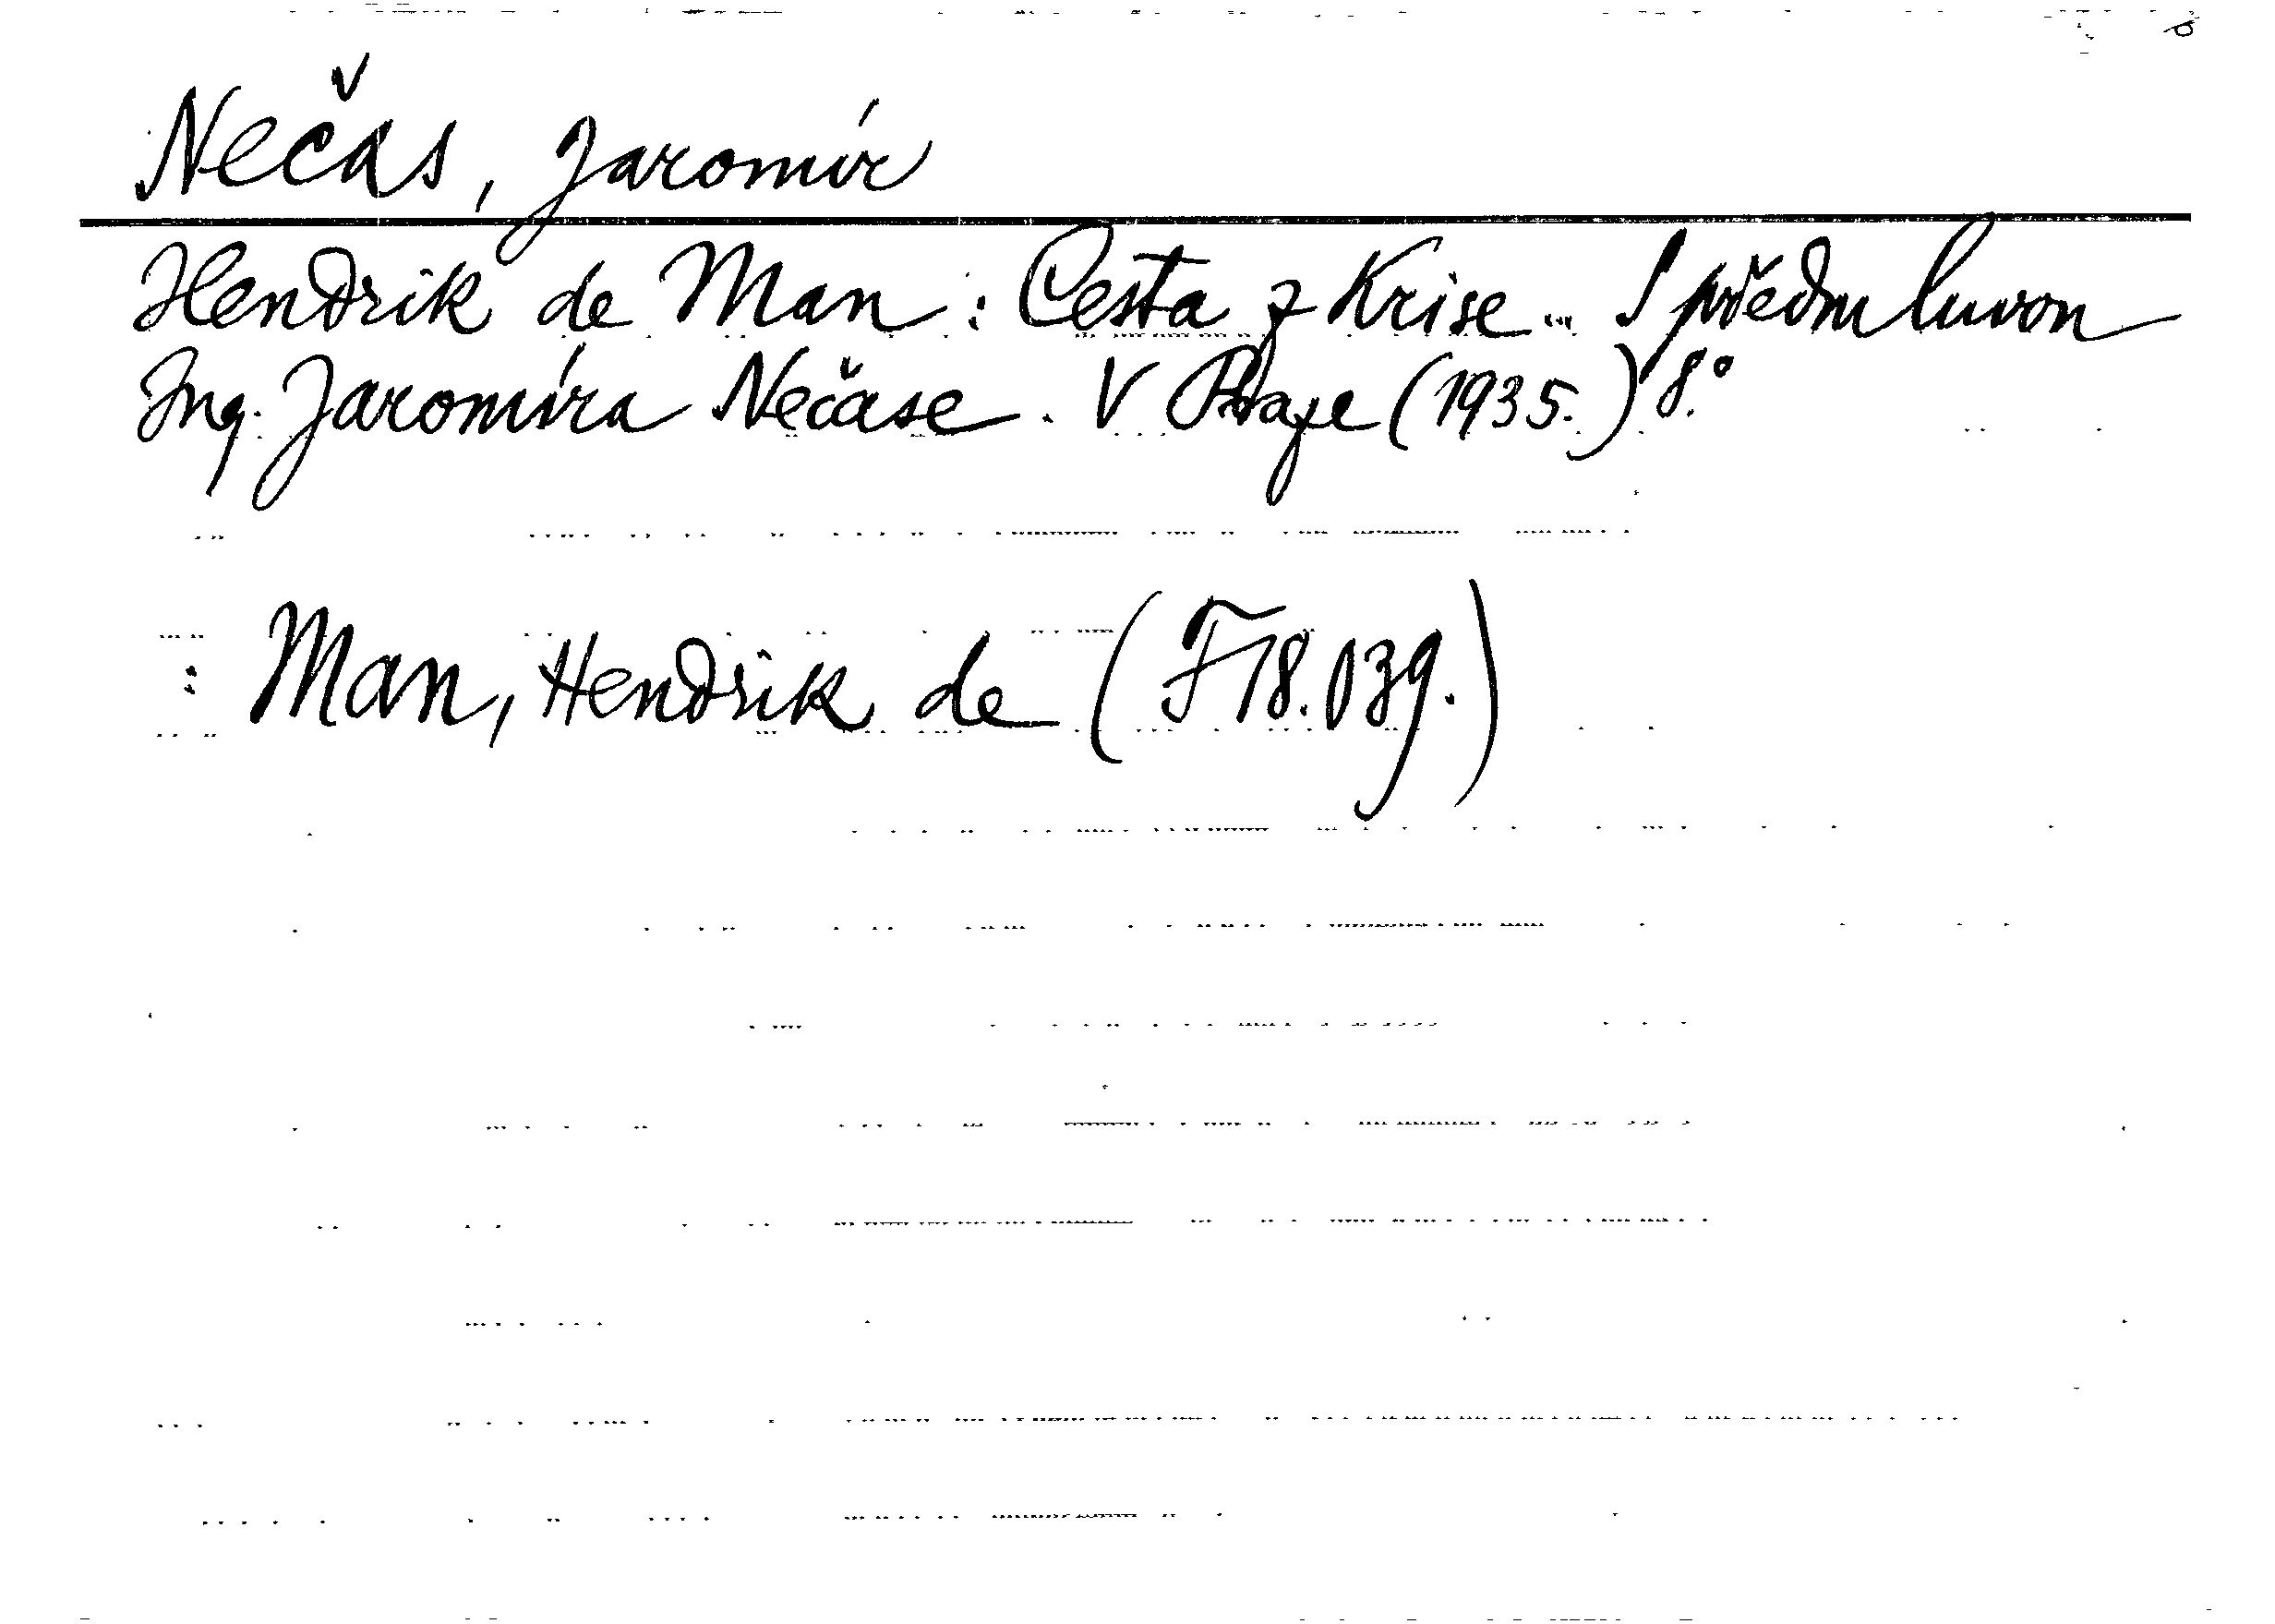 Nečas, Jaromír
Hendrik de Man: Cesta z Krise... S předmluvou
Ing. Jaromíra Nečase. V Praze (1935.) 8.°
: Man, Hendrik de (F 18.039.)